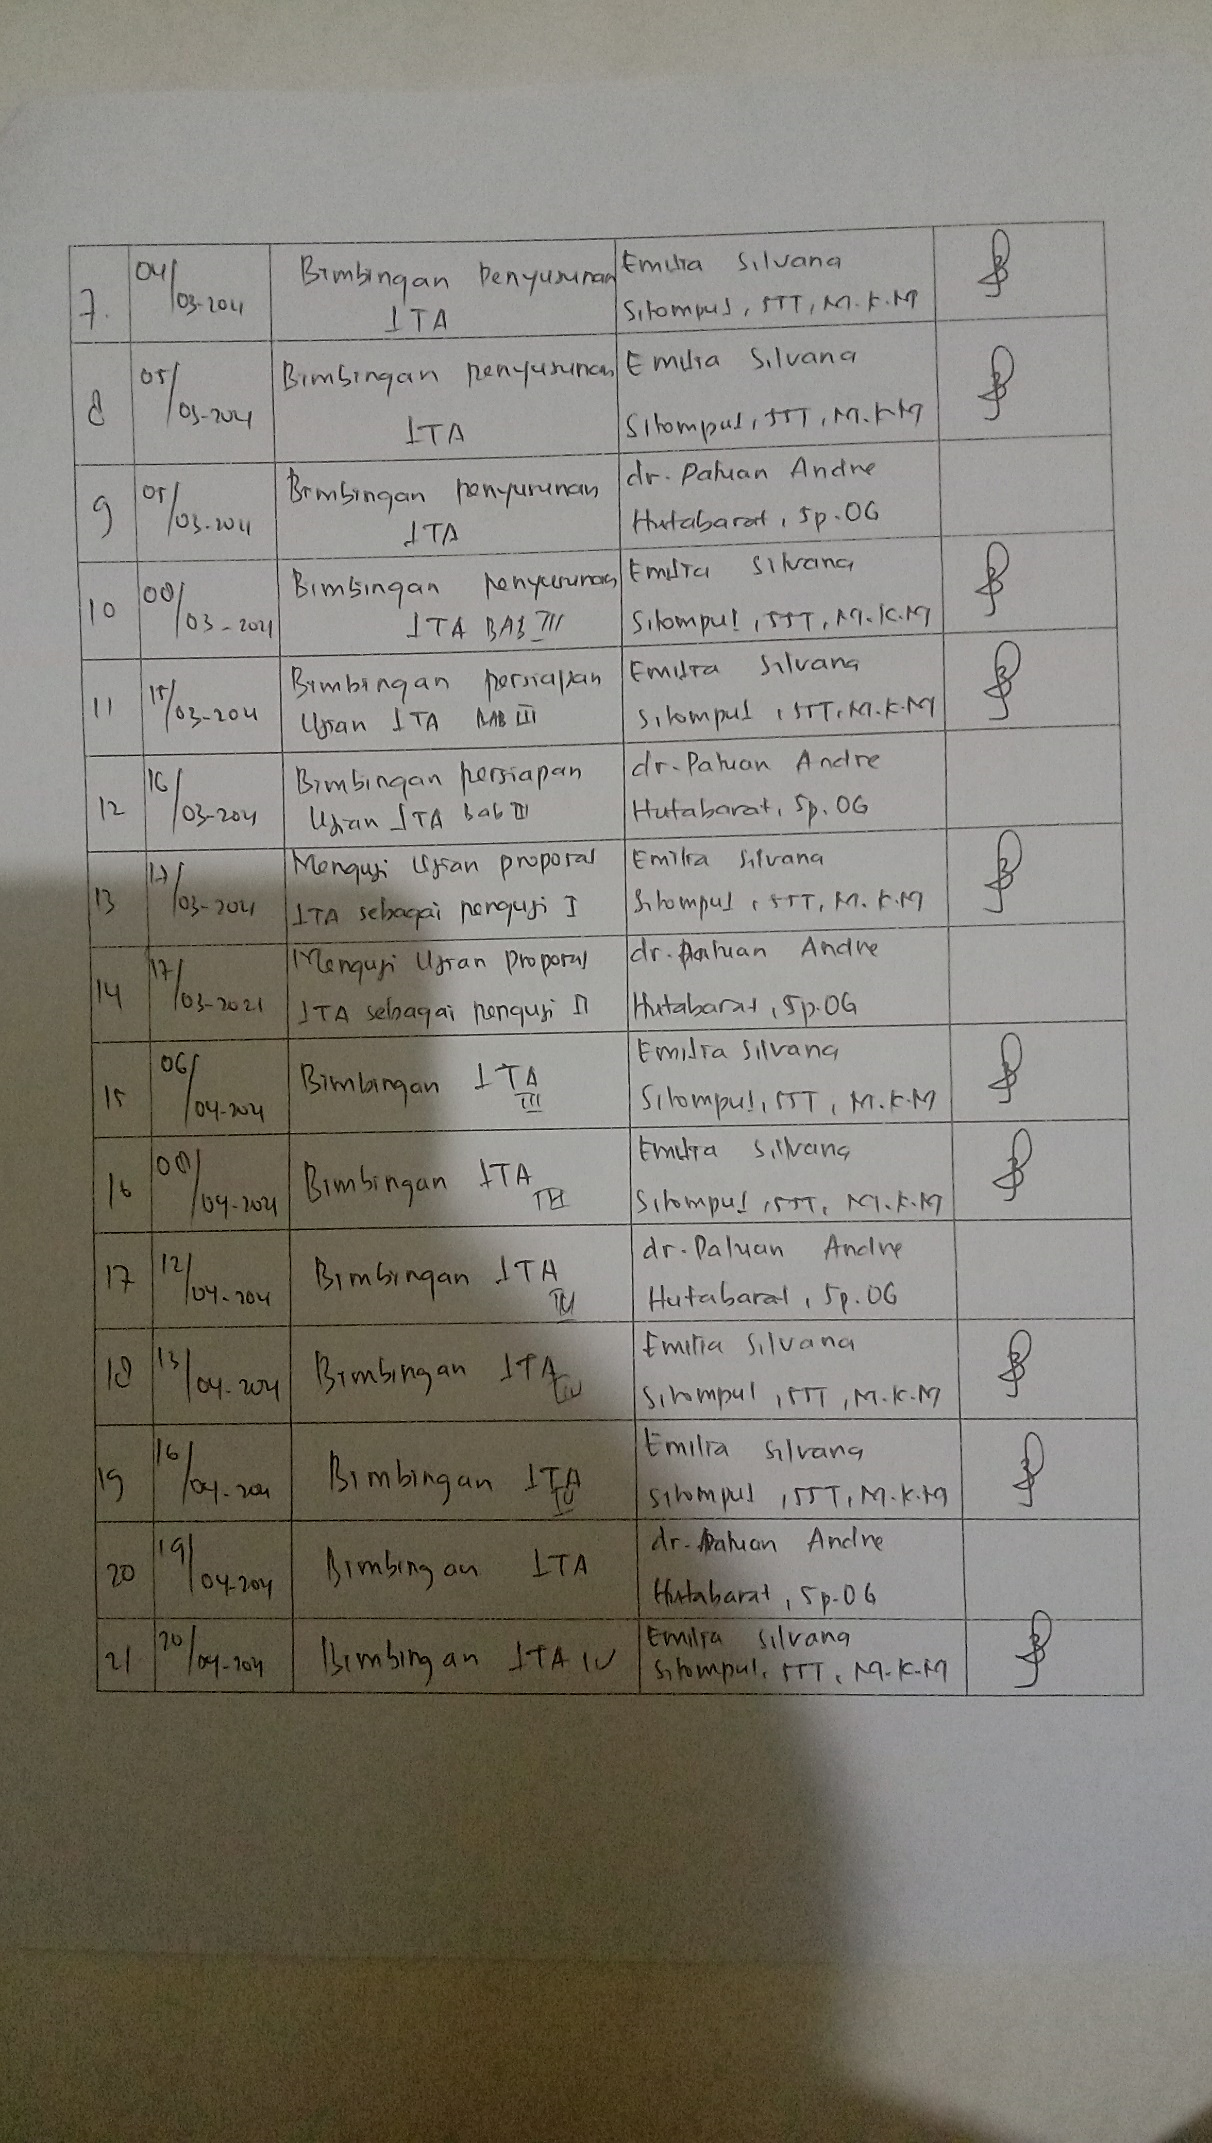 7. 04/03-2021 Bimbingan Penyusunan Emilia Silvana
ITA Sitompul, SST, M.K.M
8 05/03-2021 Bimbingan penyusunan Emilia Silvana
ITA Sitompul, SST, M.K.M
9 05/03-2021 Bimbingan penyusunan dr. Patuan Andre
ITA Hutabarat, Sp.OG
10 08/03-2021 Bimbingan penyusunan Emilia Silvana
ITA BAB III Sitompul, SST, M.K.M
11 15/03-2021 Bimbingan persiapan Emilia Silvana
Ujian ITA BAB III Sitompul, SST, M.K.M
12 16/03-2021 Bimbingan persiapan dr. Patuan Andre
Ujian ITA Bab III Hutabarat, Sp.OG
13 17/03-2021 Menguji Ujian proposal Emilia Silvana
ITA sebagai penguji I Sitompul, SST, M.K.M
14 17/03-2021 Menguji Ujian Proposal dr. Patuan Andre
ITA sebagai penguji II Hutabarat, Sp.OG
15 06/04-2021 Bimbingan ITA Emilia Silvana
III Sitompul, SST, M.K.M
16 08/04-2021 Bimbingan ITA Emilia Silvana
III Sitompul, SST, M.K.M
17 12/04-2021 Bimbingan ITA dr. Patuan Andre
IV Hutabarat, Sp.OG
18 13/04-2021 Bimbingan ITA Emilia Silvana
IV Sitompul, SST, M.K.M
19 16/04-2021 Bimbingan ITA Emilia Silvana
IV Sitompul, SST, M.K.M
20 19/04-2021 Bimbingan ITA dr. Patuan Andre
Hutabarat, Sp.OG
21 20/04-2021 Bimbingan ITA IV Emilia Silvana
Sitompul, SST, M.K.M